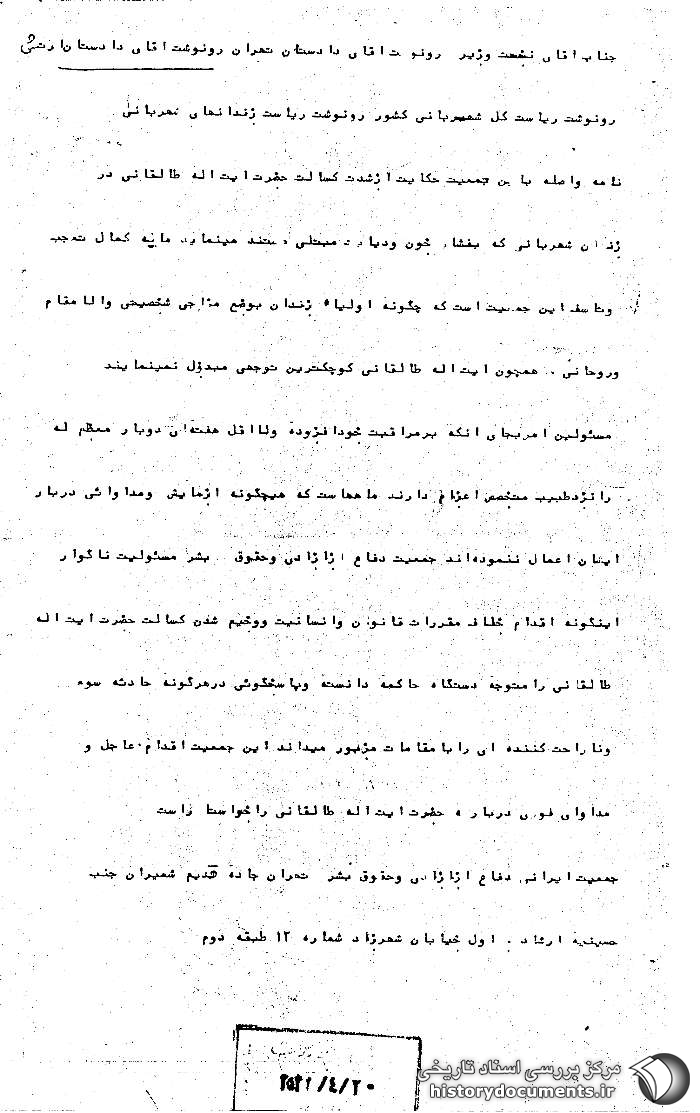 جناب اقای نخست وزیر رونوشت اقای دادستان تهران رونوشت اقای دادستان ارتش
رونوشت ریاست کل شهربانی کشور رونوشت ریاست زندانهای شهربانی
نامه واصله باین جمعیت حکایت ازشدت کسالت حضرت ایت اله طالقانی در
زندان شهربانی که بفشار خون ودیابت مبتلی هستند مینماید مایه کمال تعجب
وتاسف این جمعیت است که چگونه اولیاء زندان بوضع مزاجی شخصیتی والامقام
وروحانی . همچون ایت اله طالقانی کوچکترین توجهی مبذول نمینمایند
مسئولین امربجای انکه برمراقبت خودافزوده ولااقل هفته‌ای دوبار معظم له
را نزدطبیب متخصص اعزام دارند ماههاست که هیچگونه ازمایش ومداوائی دربار
ایشان اعمال ننموده‌اند جمعیت دفاع ازازادی وحقوق بشر مسئولیت ناگوار
اینگونه اقدام خلاف مقررات قانون وانسانیت ووخیم شدن کسالت حضرت ایت اله
طالقانی رامتوجه دستگاه حاکمه دانسته وپاسخگوئی درهرگونه حادثه سوء
وناراحت کننده ای رابامقامات مزبور میداند این جمعیت اقدام عاجل و
مداوای فوری درباره حضرت ایت اله طالقانی راخواستاراست
جمعیت ایرانی دفاع ازازادی وحقوق بشر تهران جاده قدیم شمیران جنب
حسینیه ارشاد . اول خیابان شهرزاد شماره ۱۲ طبقه دوم
۲۵۳۶/٤/۲۰
مرکز بررسی اسناد تاریخی
historydocuments.ir